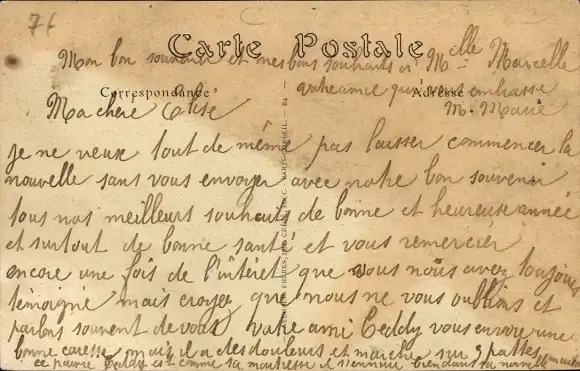 76
Carte Postale
Mon bon souvenir et mes bons souhaits à Mlle Marcelle
votre amie qui vous embrasse
M. Marie
Correspondance
Adresse
Ma chère Elise
je ne veux tout de même pas laisser commencer la
nouvelle sans vous envoyer avec notre bon souvenir
tous nos meilleurs souhaits de bonne et heureuse année
et surtout de bonne santé et vous remercier
encore une fois de l'intéret que vous nous avez toujours
témoigné mais croyez que nous ne vous oublions et
parlons souvent de vous votre ami Teddy vous envoie une
bonne caresse mais il a des douleurs et marche sur 3 pattes
ce pauvre Teddy est comme sa maitresse il s'ennuie bien dans sa nouvelle